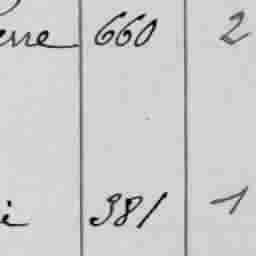 erre 660 2
i 381 1